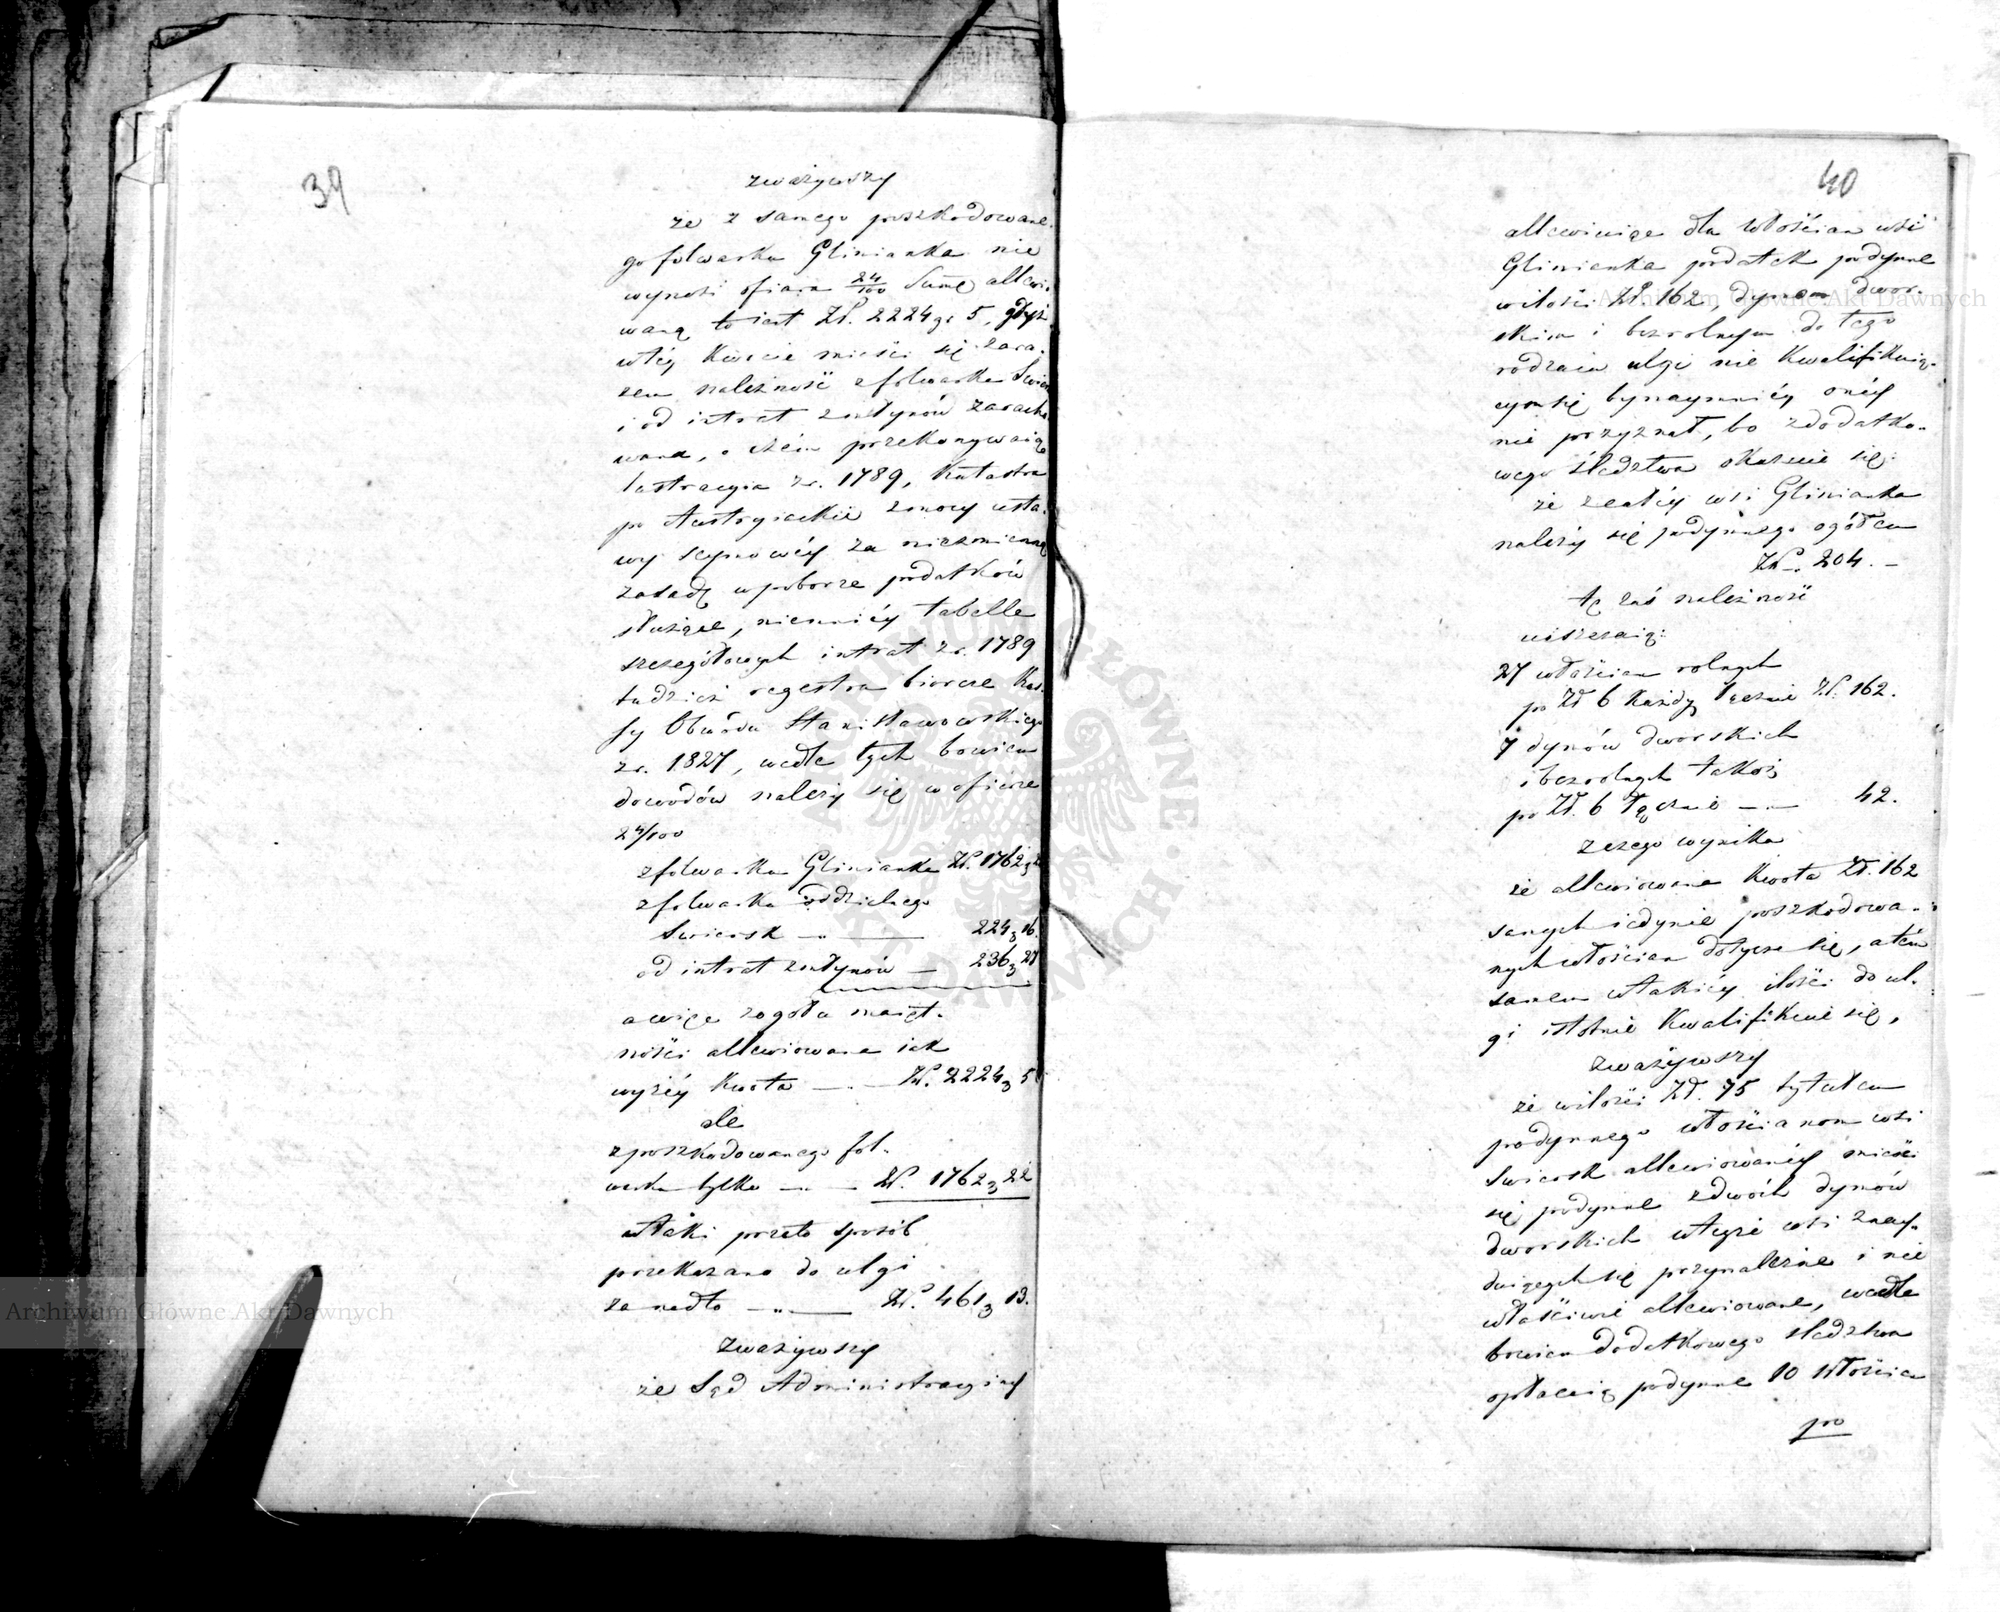 39
zważywszy
że z samego poszkodowane-
go folwarku Glinianka nie
wynosi ofiara 24/100 Summę allewio-
waną to iest Zł. 2224 gr 5, gdyż
wtéy kwocie mieści się zara-
zem należność z folwarku Swiersk
i od intrat zmłynów zaracho-
wana, o czém przekonywaiące
lustracyia z r. 1789, Katastra
po Austryiackie zmocy usta-
wy seymowéy za niezmienną
zasadę w poborze podatków
służące, niemniéy tabelle
szczegółowych intrat z r. 1789
tudzież regestra biorcze Kas-
sy Obwodu Stanisławowskiego
z r. 1827, wedle tych bowiem
dowodów należy się w ofierze
24/100
z folwarku Glinianka Zł. 1762 „ 22
z folwarku oddzielnego
Swiersk — „ — 224 „ 16.
od intrat zmłynów — 236 „ 27
a więc zogółu maięt-
ności allewiowana iak
wyżéy kwota — . — Zł. 2224 „ 5
ale
z poszkodowanego fol-
warku tylko — — Zł. 1762 „ 22
w taki przeto sposób
przekazano do ulgi
za nadto — „ — Zł. 461 „ 13.
Zważywszy
że Sąd Administracyiny
40
allewiuiąc dla włościan wsi
Glinianka podatek podymne
wilości Zł. 162, dymom dwor-
skim i bezrolnym do tego
rodzaiu ulgi nie kwalifikuią-
cym się bynaymniéy onéy
nie przyznał, bo z dodatko-
wego śledztwa okazuie się:
że z całéy wsi Glinianka
należy się podymnego ogółem
Zł. 204. —
tę zaś należność
uiszczaią:
27 włościan rolnych
po Zł 6 każdy łącznie Zł. 162.
7 dymów dworskich
i bezrolnych także
po Zł. 6 łącznie — „ — 42.
z czego wynika
że allewiowana kwota Zł. 162
samych iedynie poszkodowa-
nych włościan dotycze się, a tém
samem w takiéy ilości do ul-
gi istotnie kwalifikuie się,
Zważywszy
że wilości Zł. 75 tytułem
podymnego włościanom wsi
Swiersk allewiowanéy mieści
się podymne z dwóch dymów
dworskich wteyże wsi znay-
duiących się przynależne i nie
właściwie allewiowane, wedle
bowiem dodatkowego śledztwa
opłacaią podymne 10 Włościan
po
Archiwum Główne Akt Dawnych
Archiwum Główne Akt Dawnych